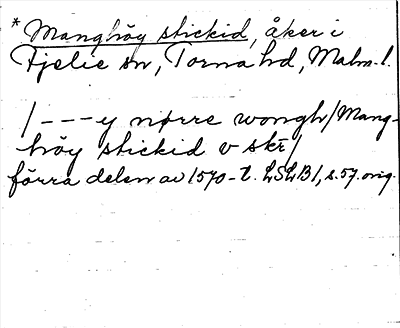 * Manghöy stickid, åker i
Fjelie sn, Torna hd, Malm. l.
/---y nørre wongh/Mang-
höy stickid v skr/
förra delen av 1570-t. LSLB1, s. 57. orig.